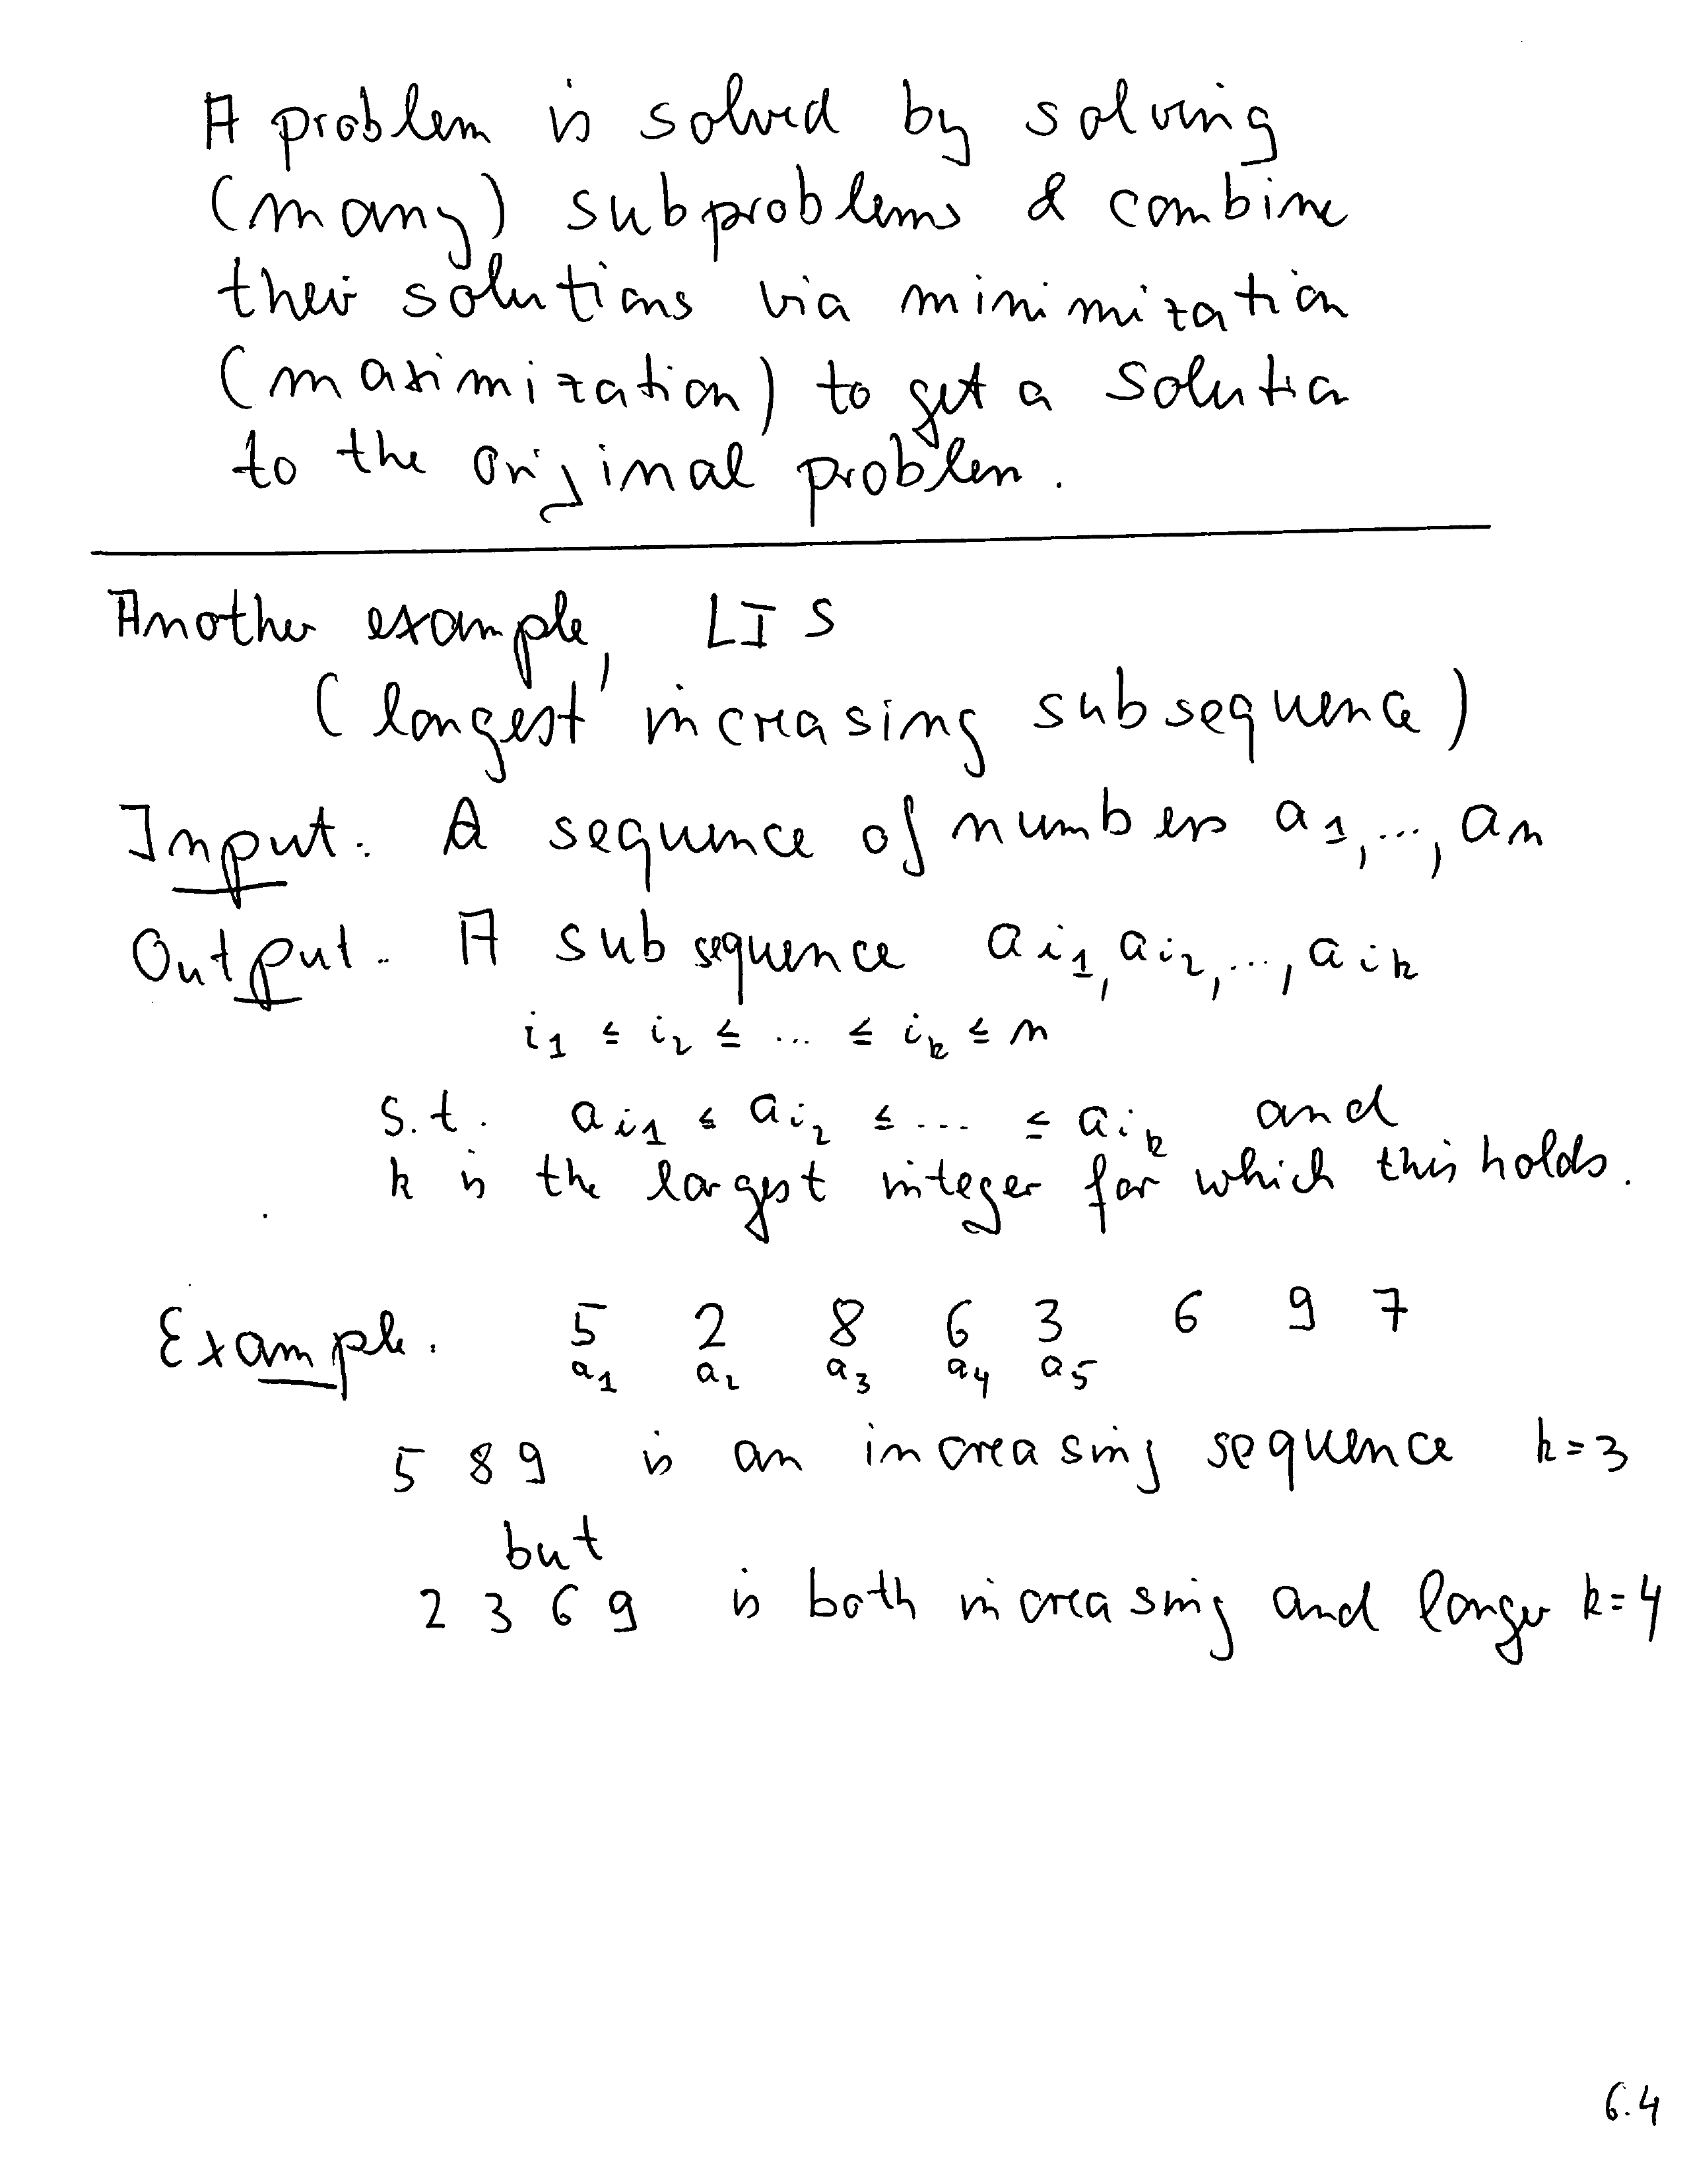 A problem is solved by solving
(many) subproblems & combine
their solutions via minimization
(maximization) to get a solution
to the original problem.
Another example, LIS
(longest increasing subsequence)
Input. A sequence of numbers a1,...,an
Output. A subsequence ai1, ai2,..., aik
i1 ≤ i2 ≤ ... ≤ ik ≤ n
s.t. ai1 ≤ ai2 ≤ ... ≤ aik and
k is the largest integer for which this holds.
Example. 5 2 8 6 3 6 9 7
a1 a2 a3 a4 a5
5 8 9 is an increasing sequence k=3
but
2 3 6 9 is both increasing and longer k=4
6.4